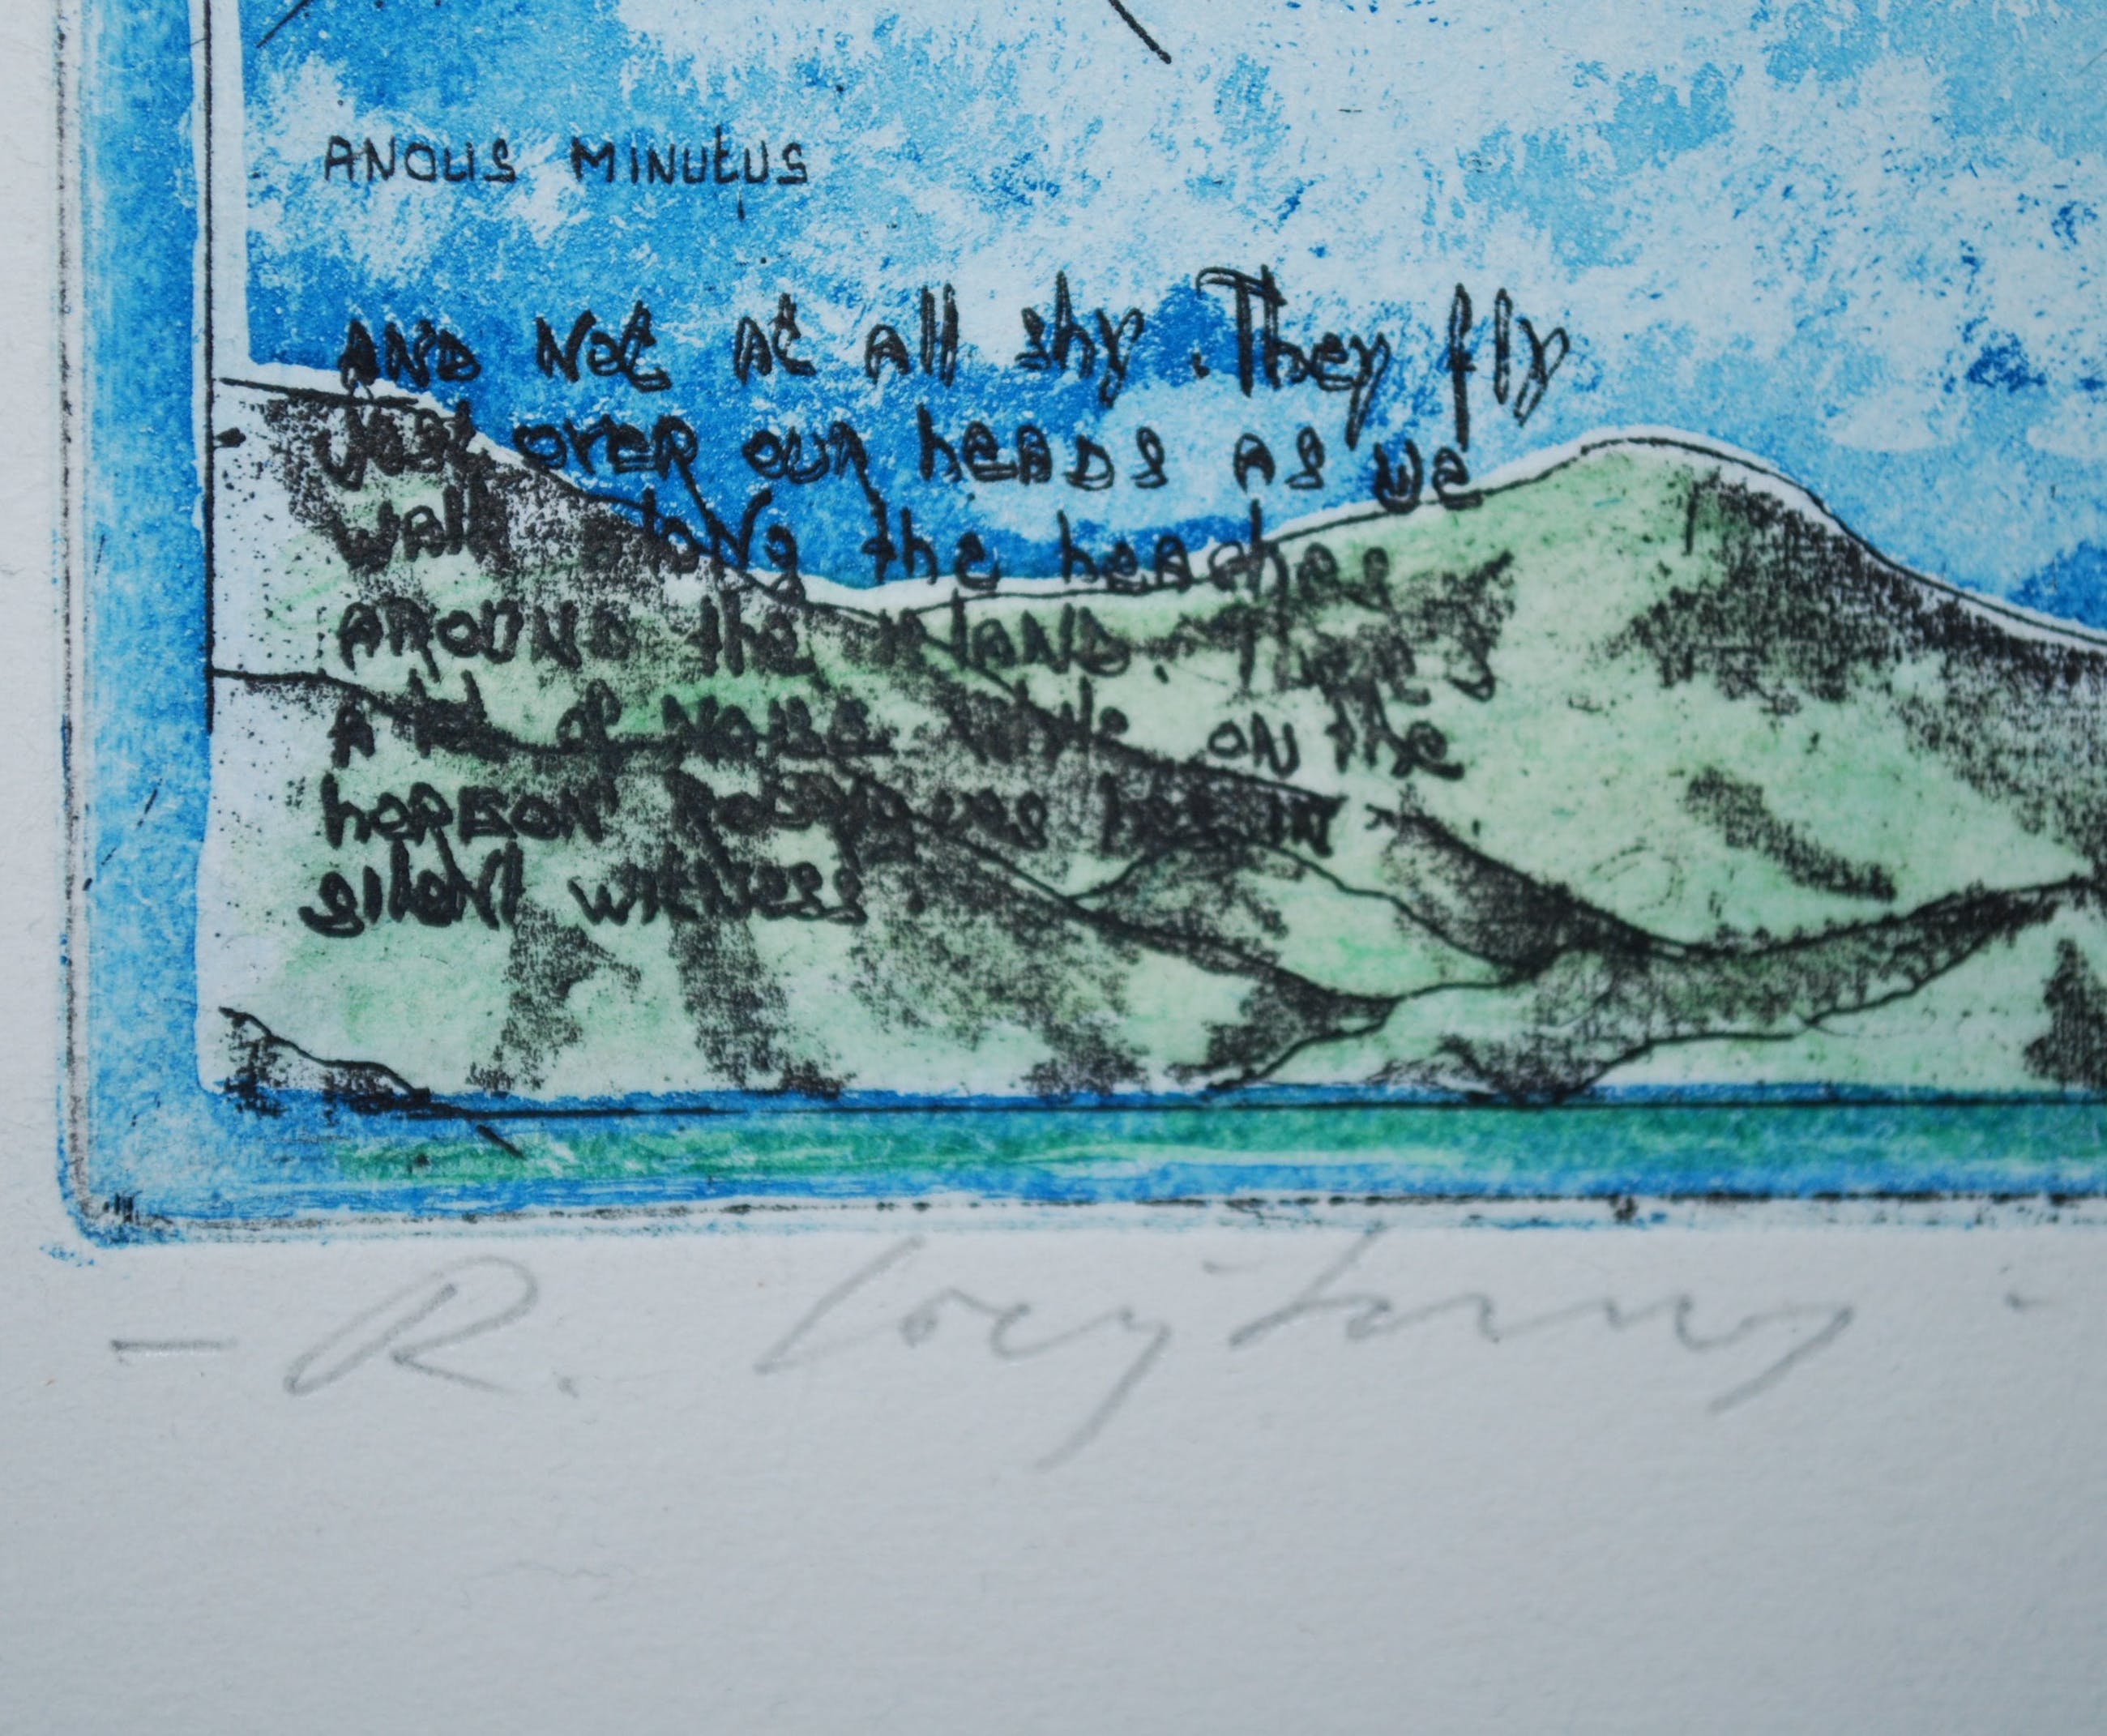 ANOUS MINUTUS
AND NOT AT All shy. They fly
just over our heads as we
walk along the beaches
AROUND the island. There is
A lot of NOISE while ON the
horizon
silent witness
- R.